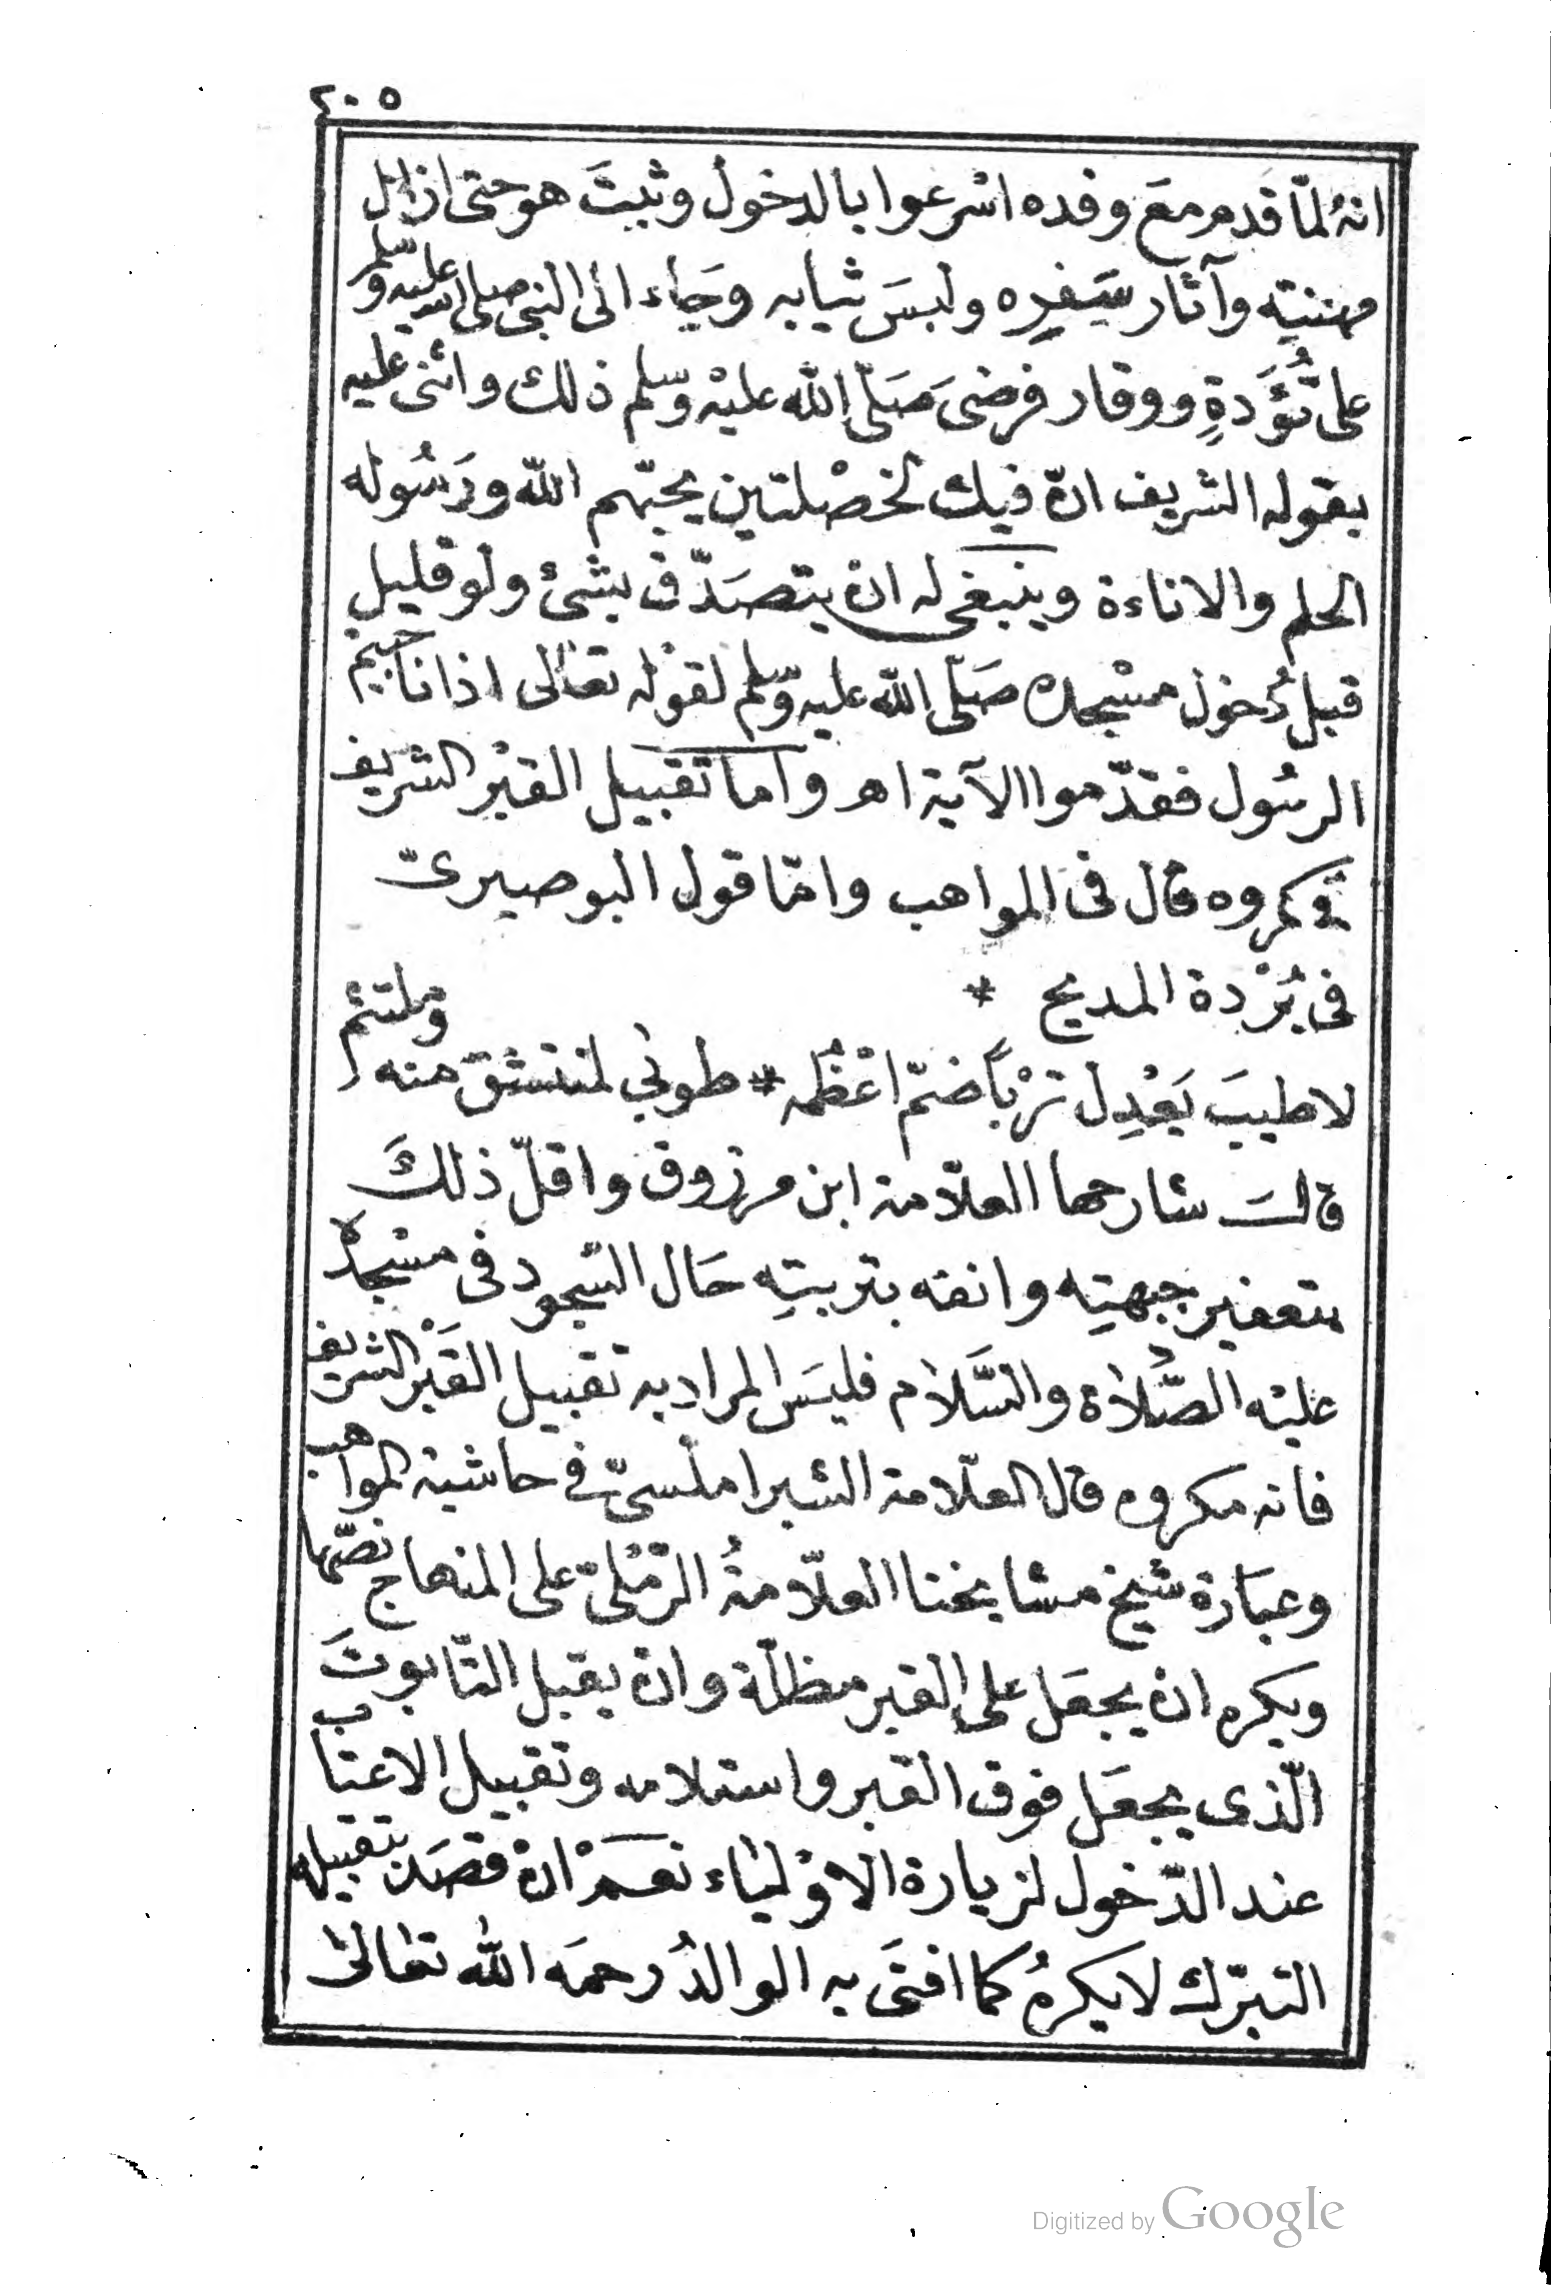 ٢٠٥
انهُ لمّا قدم معَ وفده اسْرعوا بالدخول وثبتَ هو حتى ازال
مهنتِه وآثار سَفرِه ولبسَ ثيابه وجَاء الى النبى صلى الله عليه وسلم
على تُؤَدةٍ ووقار فرضىَ صَلّى الله عليْه وسلم ذلك واثنى عليه
بقوله الشريف انّ فيك لخصْلتين يحبّهم الله ورَسُوله
الحلم والاناءة وينبغى له ان يتصَدّق بشئ ولو قليل
قبل دُخول مسْجده صَلّى الله عليه وسلم لقوْله تعَالى اذا ناجيتم
الرسُول فقدّموا الآية اهـ واما تقبيل القبْر الشريف
فمكروه قال فى المواهب وامّا قول البوصيرىّ
فى بُرْدة المديح *
لا طيبَ يَعْدِل تُرْباً ضمّ اعْظُمَه * طوبى لمنتشق منه وملتثم
قالَ شارحها العلّامة ابن مرزوق واقلّ ذلكَ
بتعفير جبهتِه وانفه بتربتِه حَال السّجود فى مسْجدهْ
عليْه الصَّلاة والسَّلام فليسَ المراد به تقبيل القَبْر الشريف
فانه مكروه قال العلّامة الشبراملسىّ فى حاشية المواهب
وعبَارة شيخ مشايخنا العلّامةُ الرّمْلىّ على المنهاج نصّها
ويكره انْ يجعَل على القبر مظلّة وانْ يقبل التّابوتَ
الّذى يجعَل فوق القبر واستلامه وتقبيل الاعتاب
عند الدّخول لزيارة الاوْليَاء نعمْ انْ قصَد بتقبيله
التبرّك لا يكرهُ كما افتَى به الوالدُ رحمَه اللهُ تعَالىٰ
Digitized by Google